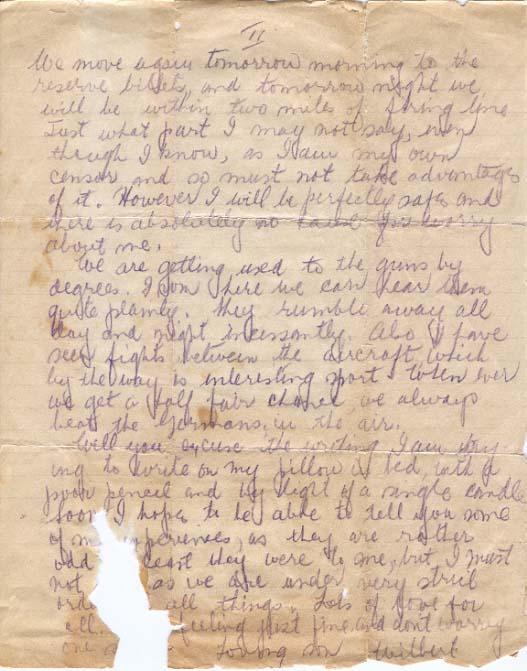 II
We move again tomorrow morning to the
reserve billets, and tomorrow night we
will be within two miles of firing line
Just what part I may not say, even
though I know, as I am my own
censor and so must not take advantage
of it. However I will be perfectly safe and
there is absolutely no cause for worry
about me.
We are getting used to the guns by
degrees. From here we can hear them
quite plainly. They rumble away all
day and night incessantly. Also I have
seen fights between the aircraft which
by the way is interesting sport when ever
we get a half fair chance we always
beat the Germans in the air.
Well you excuse the writing I am try
ing to write on my pillow in bed, with a
poor pencil and by light of a single candle
soon I hope to be able to tell you some
of my experiences, as they are rather
odd least they were to me, but I must
not as we are under very strict
all things. Lots of love for
all. feeling just fine and dont worry
one Loving son Wilbert